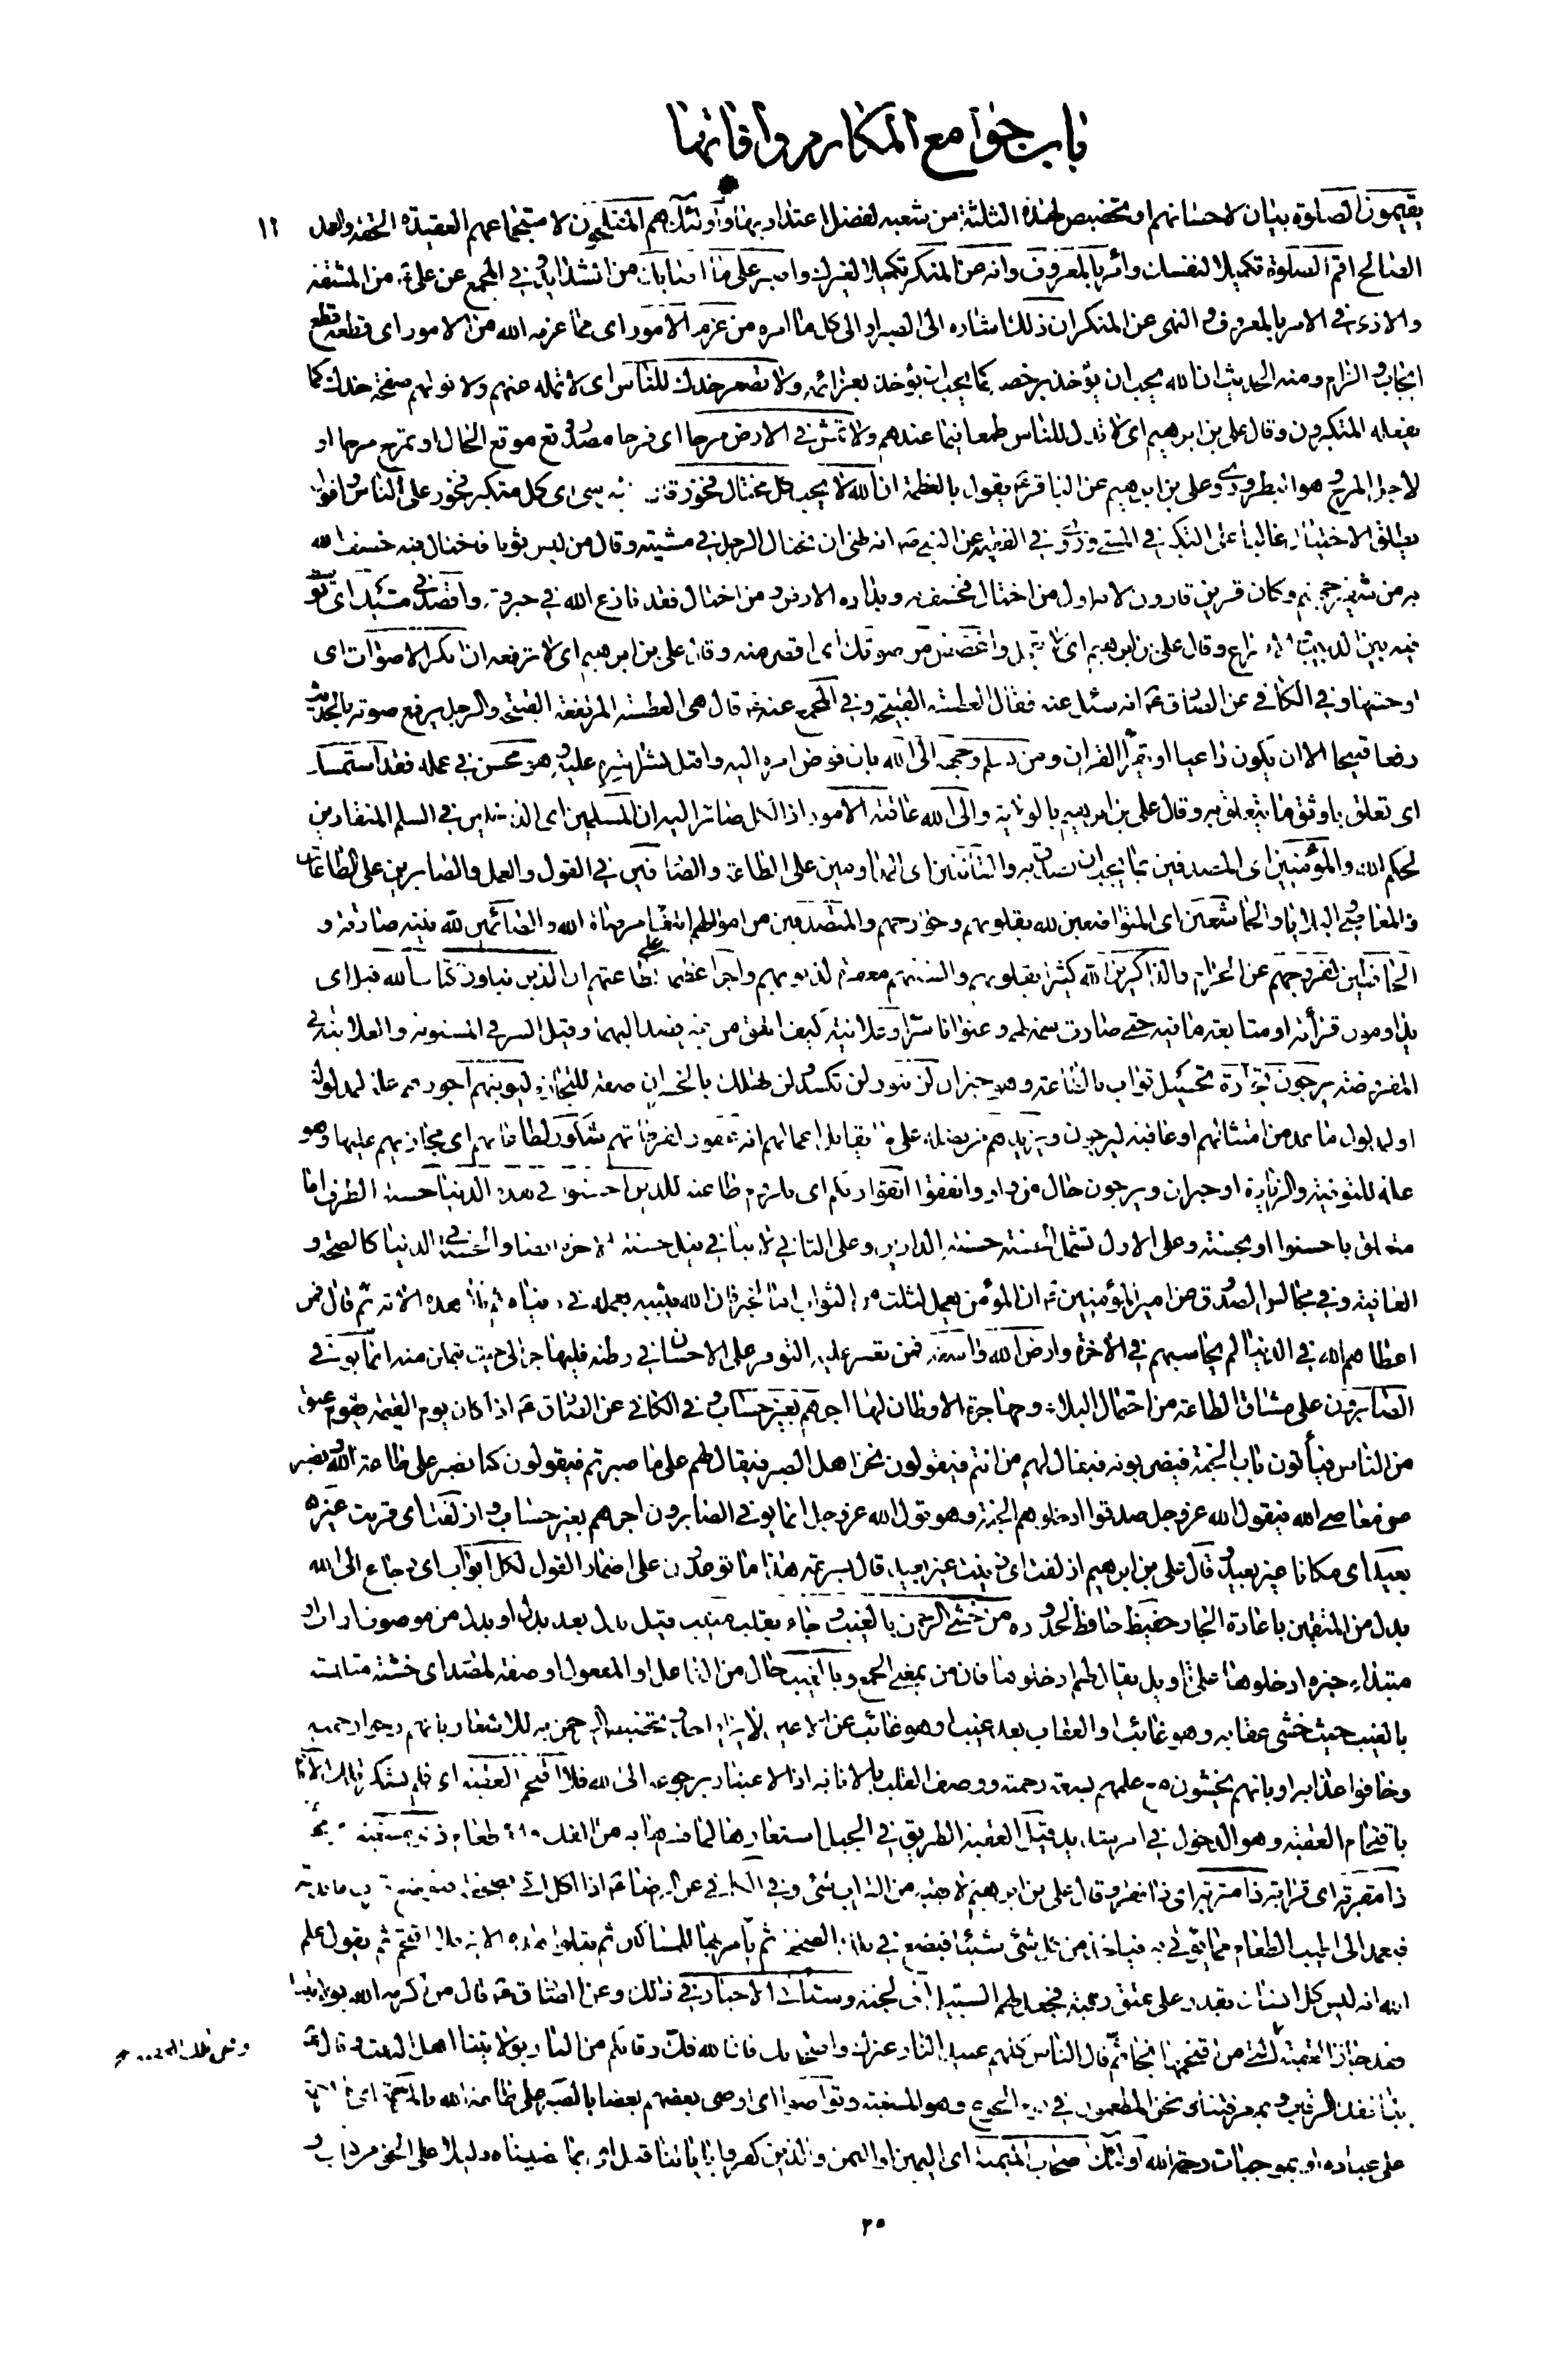 باب جوامع المكارم وآفاتها
يقيمون الصلوة بيان لاحسانهم او تخصيص لهذه الثلثة من شعبه لفضل اعتداد بها واولئك هم المفلحون لاستجماعهم العقيدة الحقة والعمل ١١
الصالح اقم الصلوة تكميلا لنفسك وأمر بالمعروف وانه عن المنكر تكميلا لغيرك واصبر على ما اصابك من الشدايد وفي المجمع عن علي ع من المشقة
والاذى في الامر بالمعروف والنهي عن المنكر ان ذلك اشاره الى الصبر او الى كل ما امره من عزم الامور اى مما عزمه الله من الامور اى قطعه قطع
ايجاب والزام ومنه الحديث ان الله يحب ان يؤخذ برخصه كما يحب ان يؤخذ بعزائمه ولا تصعر خدك للناس اى لا تمله عنهم ولا تولهم صفحة خدك كما
يفعله المتكبرون وقال علي بن ابرهيم اى لا تذل للناس طمعا فيما عندهم ولا تمش في الارض مرحا اى فرحا مصدر وقع موقع الحال او تمرح مرحا او
لاجل المرح وهو البطر وروى علي بن ابرهيم عن الباقر ع يقول بالعظمة ان الله لا يحب كل مختال فخور اى كل متكبر فخور على الناس واقول
يطلق الاختيال غالبا على التكبر في المشي وروى في الفقيه عن النبي ص انه نهى ان يختال الرجل في مشيته وقال من لبس ثوبا فاختال فيه خسف الله
به من شفير جهنم وكان قرين قارون لانه اول من اختال فخسف به وبداره الارض ومن اختال فقد نازع الله في جبروته واقصد في مشيك اى توسط
فيه بين الدبيب والاسراع وقال علي بن ابرهيم اى لا تعجل واغضض من صوتك اى اقصر منه وقال علي بن ابرهيم اى لا ترفعه ان انكر الاصوات اى
اوحشها وفي الكافي عن الصادق ع انه سئل عنه فقال العطسة القبيحة وفي المجمع عنه ع قال هى العطسة المرتفعة القبيحة والرجل يرفع صوته بالحديث
رفعا قبيحا الا ان يكون داعيا او يقرأ القران ومن يسلم وجهه الى الله بان فوض امره اليه واقبل بشراشره عليه وهو محسن في عمله فقد استمسك
اى تعلق باوثق ما يتعلق به وقال علي بن ابرهيم بالولاية والى الله عاقبة الامور اذ الكل صائر اليه ان المسلمين اى الداخلين في السلم المنقادين
لحكم الله والمؤمنين اى المصدقين بما يجب ان يصدق به والقانتين اى المداومين على الطاعة والصادقين في القول والعمل والصابرين على الطاعات
والمعاصي والبلايا والخاشعين اى المتواضعين لله بقلوبهم وجوارحهم والمتصدقين من اموالهم ابتغاء مرضاة الله والصائمين لله بنيته صادقة و
الحافظين لفروجهم عن الحرام والذاكرين الله كثيرا بقلوبهم والسنتهم مغفرة لذنوبهم واجرا عظيما على طاعتهم ان الذين يتلون كتاب الله قيل اى
يداومون قرأته او متابعة ما فيه حتى صارت سمة لهم وعنوانا سرا وعلانية كيف اتفق من غير قصد اليهما وقيل السر في المسنونة والعلانية في
المفروضة يرجون تجارة تحصيل ثواب بالطاعة وهو خبر ان لن تبور لن تكسد ولن تهلك بالخسران صفة للتجارة ليوفيهم اجورهم علة لمدلوله
او لمدلول ما عد من امتثالهم او عاقبة ليرجون ويزيدهم من فضله على ما يقابل اعمالهم انه غفور لفرطاتهم شكور لطاعاتهم اى مجازيهم عليها وهو
علة للتوفية والزيادة او خبر ان ويرجون حال من واو وانفقوا اتقوا ربكم اى بلزوم طاعته للذين احسنوا في هذه الدنيا حسنة الظرف اما
متعلق باحسنوا او بحسنة وعلى الاول تشمل الحسنة حسنة الدارين وعلى الثاني لا ينافي نيل حسنة الاخرة ايضا والحسنة في الدنيا كالصحة و
العافية وفي مجالس الصدوق عن امير المؤمنين ع ان المؤمن يعمل لثلث من الثواب اما لخير فان الله يثيبه بعمله في دنياه ثم تلا هذه الاية ثم قال فمن
اعطاهم الله في الدنيا لم يحاسبهم في الاخرة وارض الله واسعة فمن تعسر عليه التوفر على الاحسان في وطنه فليهاجر الى حيث يتمكن منه انما يوفى
الصابرون على مشاق الطاعة من احتمال البلاء ومهاجرة الاوطان لها اجرهم بغير حساب وفي الكافي عن الصادق ع اذا كان يوم القيمة يقوم عنق
من الناس فيأتون باب الجنة فيضربونه فيقال لهم من انتم فيقولون نحن اهل الصبر فيقال لهم على ما صبرتم فيقولون كنا نصبر على طاعة الله ونصبر
عن معاصي الله فيقول الله عز وجل صدقوا ادخلوهم الجنة وهو قول الله عز وجل انما يوفى الصابرون اجرهم بغير حساب وازلفت اى قربت غير
بعيد اى مكانا غير بعيد وقال علي بن ابرهيم ازلفت اى زينت غير بعيد قال بسرعة هذا ما توعدون على اضمار القول لكل اواب اى رجاع الى الله
بدل من المتقين باعادة الجار حفيظ حافظ لحدوده من خشي الرحمن بالغيب وجاء بقلب منيب قيل بدل بعد بدل او بدل من موصوف اواب او
مبتداء خبره ادخلوها على تأويل يقال لهم ادخلوها فان من بمعنى الجمع وبالغيب حال من الفاعل او المفعول او صفة لمصدر اى خشية متلبسة
بالغيب حيث خشي عقابه وهو غائب او العقاب بعد غيب او هو غائب عن الاعين لا يراه احد وتخصيص الرحمن به للاشعار بانهم رجوا رحمته
وخافوا عذابه او بانهم يخشون مع علمهم بسعة رحمته ووصف القلب بالانابة اذ الاعتبار برجوعه الى الله فلا اقتحم العقبة اى فلم يشكر تلك الايادي
باقتحام العقبة وهو الدخول في امر شديد قيل العقبة الطريق في الجبل استعارها لما فسرها به من الفك والاطعام في يوم ذي مسغبة
ذا مقربة اى قرابة ذا متربة اى ذا فقر وقال علي بن ابرهيم لا يقيه من التراب شئ وفي الكافي عن الرضا ع اذا اكل اتي بصحفة فتوضع قرب مائدته
فيعمد الى اطيب الطعام مما يؤتى به فياخذ من كل شئ شيئا فيضع في تلك الصحفة ثم يأمر بها للمساكين ثم يتلو هذه الاية فلا اقتحم ثم يقول علم
الله انه ليس كل انسان يقدر على عتق رقبة فجعل لهم السبيل الى الجنة وستأتي الاخبار في ذلك وعن الصادق ع قال من اكرمه الله بولايتنا
فقد جاز العقبة ونحن تلك العقبة التي من اقتحمها نجا ثم قال الناس كلهم عبيد النار غيرك واصحابك فان الله فك رقابكم من النار بولايتنا اهل البيت وقال ع
بنا تفك الرقاب وبمعرفتنا ونحن المطعمون في يوم الجوع وهو المسغبة وتواصوا اى اوصى بعضهم بعضا بالصبر على طاعة الله بالمرحمة اى الرحمة
على عباده او بموجبات رحمة الله اولئك اصحاب الميمنة اى اليمين او اليمن والذين كفروا باياتنا قيل اى بما نصبناه دليلا على الحق من كتاب و
٢٥